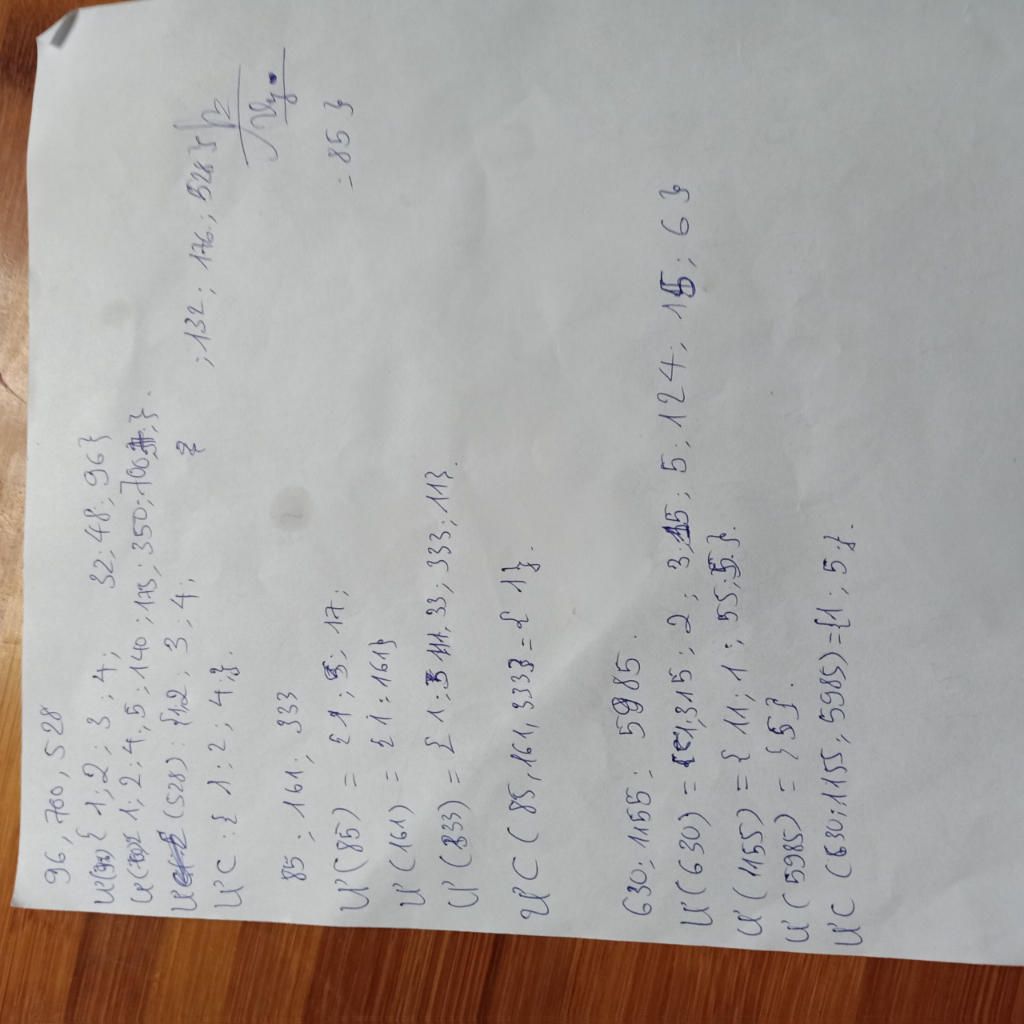 96, 700, 528
Ư(96) { 1; 2; 3; 4; 32; 48; 96 }
1; 2; 4; 5; 140; 175; 350; 700 }.
(528) : {1,2; 3; 4; ; 132; 176; 528 }
ƯC : { 1; 2; 4; }.
85; 161; 333
Ư(85) = { 1; 5; 17; ; 85 }
Ư(161) = { 1; 161}
Ư(333) = { 1; 111, 33; 333; 11}.
ƯC (85, 161, 333) = { 1}.
630; 1155; 5985.
Ư(630) = {1,315; 2; 3; 15; 5; 124; 15; 6 }
Ư(1155) = { 11; 1; 55; 5}.
Ư(5985) = { 5}.
ƯC (630; 1155; 5985) = {1; 5;}.